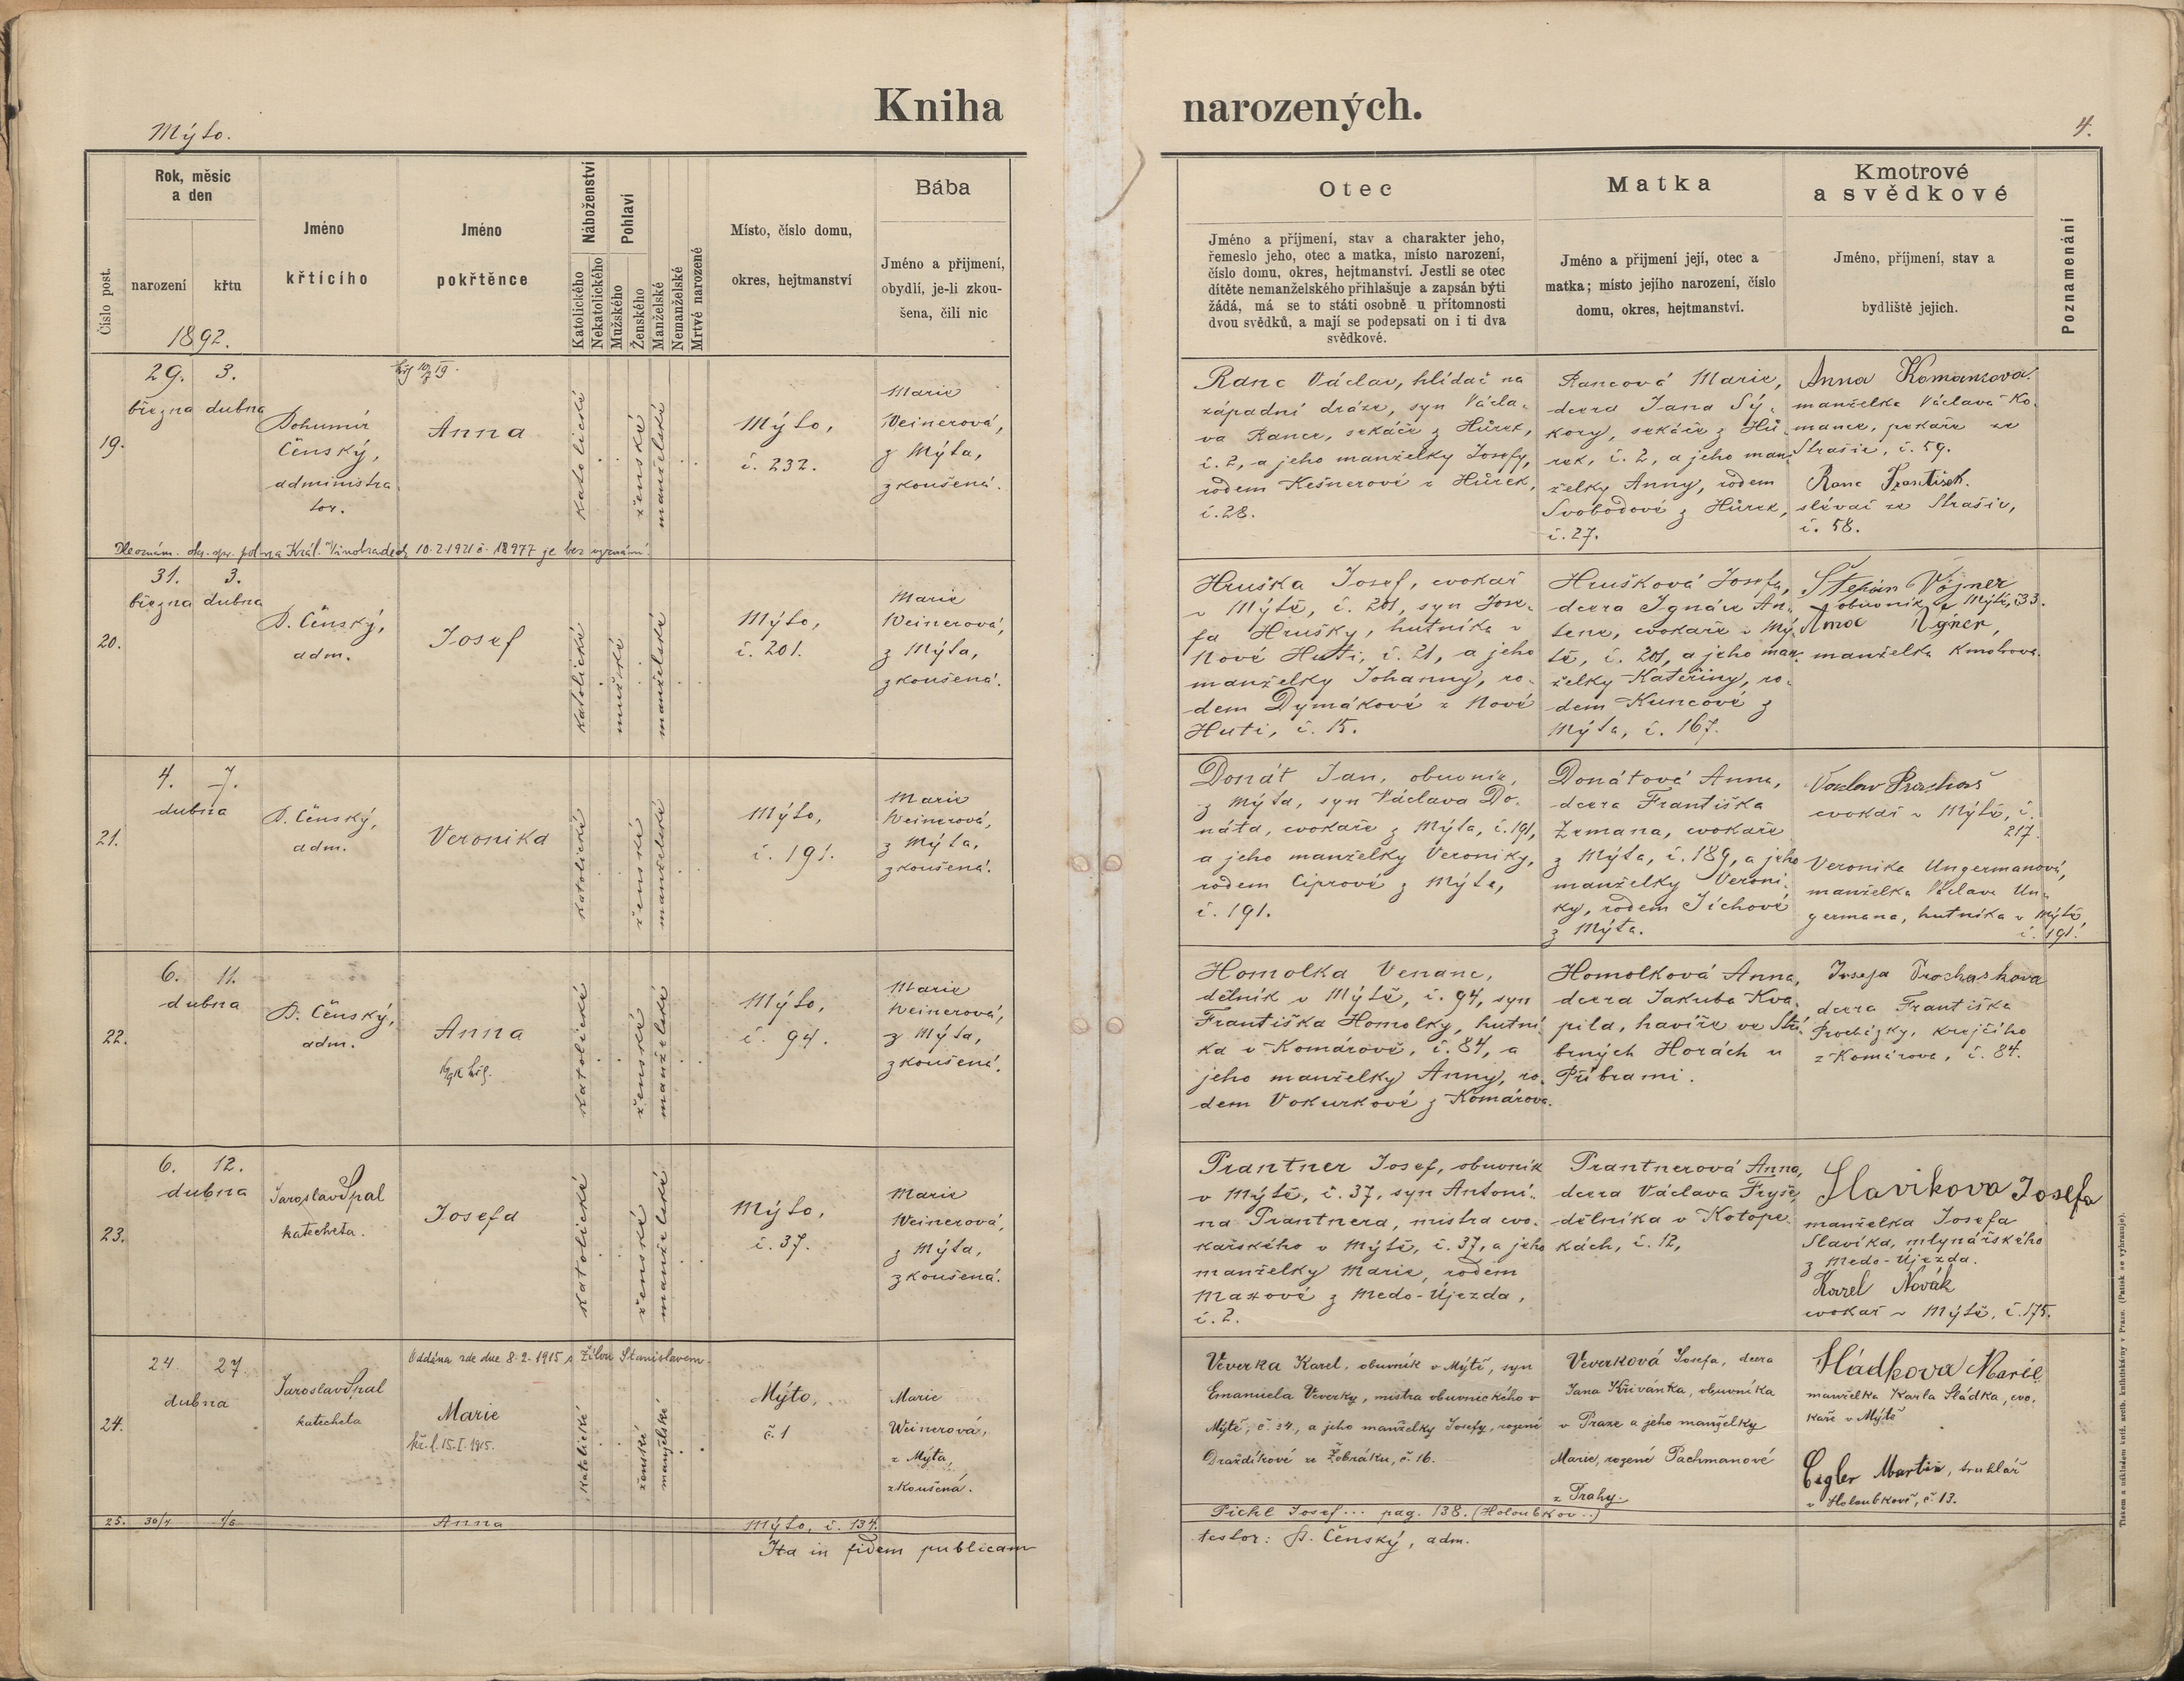 Kniha narozených.
Mýto.
4.
Číslo post.
Rok, měsíc
a den
narození
křtu
1892.
Jméno
křtícího
Jméno
pokřtěnce
Náboženství
Katolického
Nekatolického
Pohlaví
Mužského
Ženského
Manželské
Nemanželské
Mrtvě narozené
Místo, číslo domu,
okres, hejtmanství
Bába
Jméno a příjmení,
obydlí, je-li zkou-
šena, čili nic
Otec
Jméno a příjmení, stav a charakter jeho,
řemeslo jeho, otec a matka, místo narození,
číslo domu, okres, hejtmanství. Jestli se otec
dítěte nemanželského přihlašuje a zapsán býti
žádá, má se to státi osobně u přítomnosti
dvou svědků, a mají se podepsati on i ti dva
svědkové.
Matka
Jméno a příjmení její, otec a
matka; místo jejího narození, číslo
domu, okres, hejtmanství.
Kmotrové
a svědkové
Jméno, příjmení, stav a
bydliště jejich.
Poznamenání
19.
29. 3.
března dubna
Bohumír
Čenský,
administra
tor.
Anna
katolické
ženské
manželské
Mýto,
č. 232.
Marie
Weinerová,
z Mýta,
zkoušená.
Ranc Václav, hlídač na
západní dráze, syn Václa-
va Rance, sekáče z Hůrek,
č. 2, a jeho manželky Josefy,
rodem Kešnerové z Hůrek,
č. 28.
Rancová Marie,
dcera Jana Sý-
kory, sekáče z Hů-
rek, č. 2, a jeho man-
želky Anny, rodem
Svobodové z Hůrek,
č. 27.
Anna Komancova
manželka Václava Ko-
mance, pekaře ze
Strašic, č. 59.
Ranc František.
slévač ze Strašic,
č. 58.
Dle oznám. okr. spr. pol. na Král. Vinohradech 10.2.1921 č. 18977 je bez vyznání.
20.
31. 3.
března dubna
B. Čenský,
adm.
Josef
katolické
mužské
manželské
Mýto,
č. 201.
Marie
Weinerová,
z Mýta,
zkoušená.
Hruška Josef, cvokař
v Mýtě, č. 201, syn Jose-
fa Hrušky, hutníka v
Nové Huti, č. 21, a jeho
manželky Johanny, ro-
dem Dymákové z Nové
Huti, č. 15.
Hrušková Josefa,
dcera Ignáce An-
tene, cvokaře v Mý-
tě, č. 201, a jeho man-
želky Kateřiny, ro-
dem Kuncové z
Mýta, č. 167.
Štepán Vojner
obuvník v Mýtě, č 33.
manželka kmotrova.
21.
4. 7.
dubna
B. Čenský,
adm.
Veronika
katolické
ženské
manželské
Mýto,
č. 191.
Marie
Weinerová,
z Mýta,
zkoušená.
Donát Jan, obuvník,
z Mýta, syn Václava Do-
náta, cvokaře z Mýta, č. 191,
a jeho manželky Veroniky,
rodem Ciprové z Mýta,
č. 191.
Donátová Anna,
dcera Františka
Zemana, cvokaře
z Mýta, č. 189, a jeho
manželky Veroni-
ky, rodem Jíchové
z Mýta.
cvokař v Mýtě, č.
217.
Veronika Ungermanová,
manželka Václava Un-
germana, hutníka v Mýtě,
č. 191.
22.
6. 11.
dubna
B. Čenský,
adm.
Anna
katolické
ženské
manželské
Mýto,
č. 94.
Marie
Weinerová,
z Mýta,
zkoušená.
Homolka Venanc,
dělník v Mýtě, č. 94, syn
Františka Homolky, hutní-
ka v Komárově, č. 84, a
jeho manželky Anny, ro-
dem Vokurkové z Komárova.
Homolková Anna,
dcera Jakuba Kva-
pila, havíře ve Stří-
brných Horách u
Příbrami.
Josefa Prochaskova
dcera Františka
Procházky, krejčího
z Komárova, č. 84.
23.
6. 12.
dubna
Jaroslav Špal
katecheta.
Josefa
katolické
ženské
manželské
Mýto,
č. 37.
Marie
Weinerová,
z Mýta,
zkoušená.
Prantner Josef, obuvník
v Mýtě, č. 37, syn Antoní-
na Prantnera, mistra cvo-
kařského v Mýtě, č. 37, a jeho
manželky Marie, rodem
Maxové z Medo-Újezda,
č. 2.
Prantnerová Anna,
dcera Václava Fryše,
dělníka v Kotope-
kách, č. 12,
Slavikova Josefa
manželka Josefa
Slavíka, mlynářského
z Medo-Újezda.
Karel Novák
cvokař v Mýtě, č. 175.
24.
24 27
dubna
Jaroslav Špal
katecheta
Oddána zde dne 8.2.1915 s Žílou Stanislavem.
Marie
kř. l. 15.I.1915.
katolické
ženské
manželské
Mýto,
č. 1
Marie
Weinerová,
z Mýta,
zkoušená.
Veverka Karel, obuvník v Mýtě, syn
Emanuela Veverky, mistra obuvnického v
Mýtě, č. 34, a jeho manželky Josefy, rozené
Draždíkové ze Žebráku, č. 16.
Veverková Josefa, dcera
Jana Křivánka, obuvníka
v Praze a jeho manželky
Marie, rozené Pachmanové
z Prahy.
Hádkova Marie
manželka Karla Hádka, cvo-
kaře v Mýtě
Cegler Martin, truhlář
v Holoubkově, č. 13.
25. 30/4 1/5 Anna Mýto, č. 134. Pichl Josef... pag. 138. (Holoubkov...)
Ita in fidem publicam testor: B. Čenský, adm.
Tiskem a nákladem kníž. arcib. knihtiskárny v Praze. (Patisk se vyhrazuje).